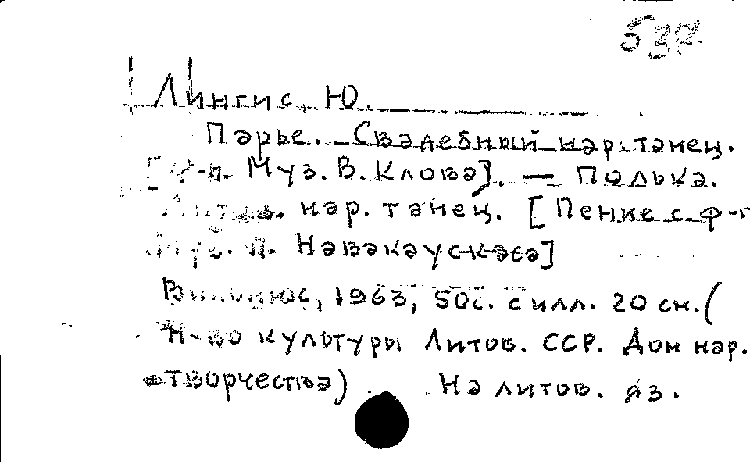 539.
Лингис, Ю.
Парье. Свадебный нар. танец.
[Ф-п. Муз. В. Клова]. — Полька.
Литов. нар. танец. [Пение с ф-п
Муз. П. Навакаускаса]
Вильнюс, 1963, 50с. с илл. 20 см. (
М-во культуры Литов. ССР. Дом нар.
творчества) На литов. яз.